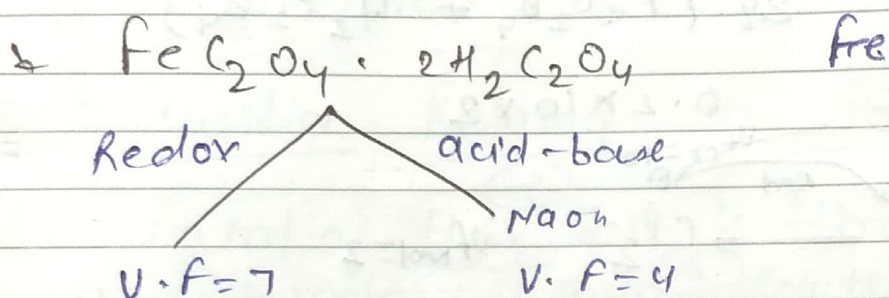 FeC₂O₄ · 2H₂C₂O₄ fre
Redox acid-base
NaOH
V.f=7 V.f=4